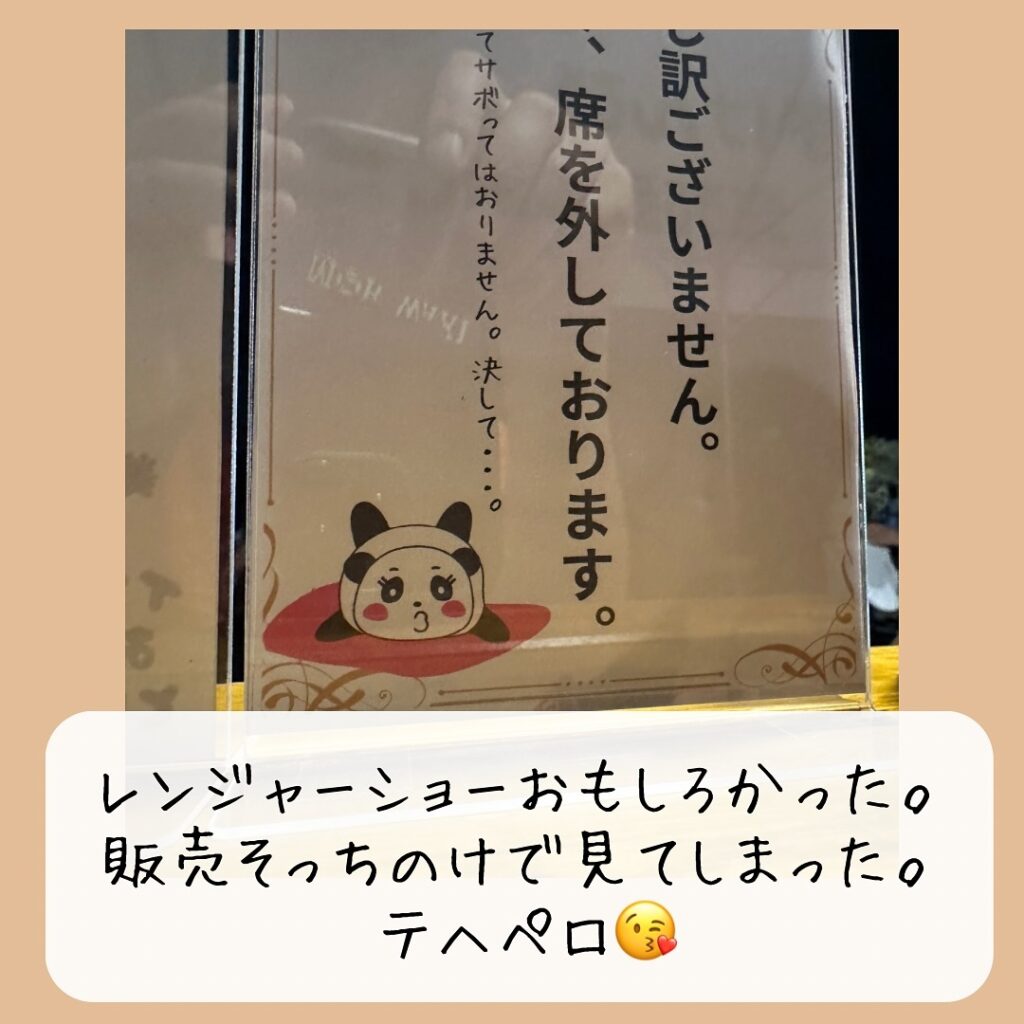 し訳ございません。
、席を外しております。
てサボってはおりません。決して・・・。
レンジャーショーおもしろかった。
販売そっちのけで見てしまった。
テヘペロ😘